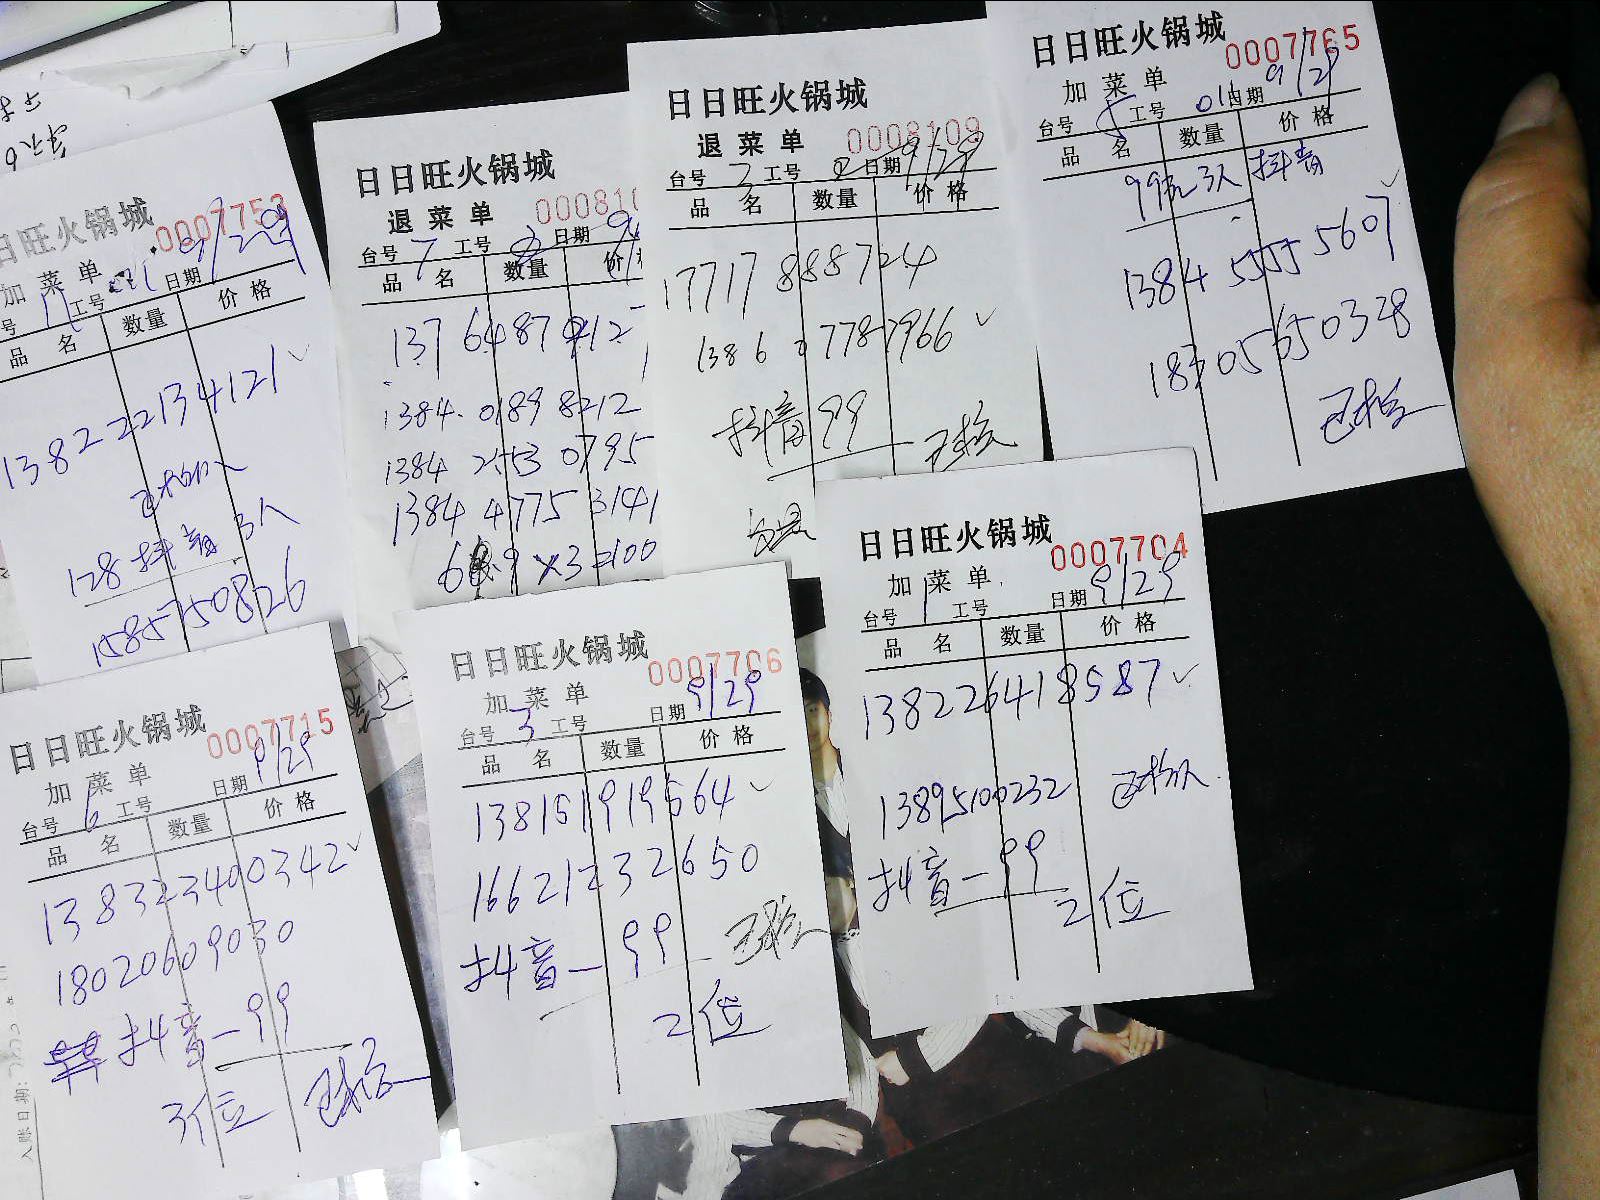 日日旺火锅城
0007753
加菜单
工号 日期 9/29
品名 数量 价格
13822234121
已核
128抖音 3人
15857150826
日日旺火锅城
退菜单
台号 7 工号 日期
品名 数量
1384 0189 8212
1384 2553 0795
1384 4775 3141
日日旺火锅城
退菜单 0008109
台号 2 工号 日期 9/29
品名 数量 价格
17717888724
1386 0778 7966
抖音99 已核
日日旺火锅城
0007765
加菜单
台号 5 工号 01 日期 9/29
品名 数量 价格
99元3人 抖音
1384 5555 5607
18305650328
已核
日日旺火锅城
0007715
加菜单
台号 6 工号 日期 9/29
品名 数量 价格
138323400342
18020609030
抖音-99
3位 已核
日日旺火锅城
0007706
加菜单
台号 3 工号 日期 9/29
品名 数量 价格
138151919564
16621232650
抖音-99 已核
2位
日日旺火锅城
0007704
加菜单
台号 1 工号 日期 9/29
品名 数量 价格
138226418587
13895100232 已核
抖音-99
2位
入账日期: